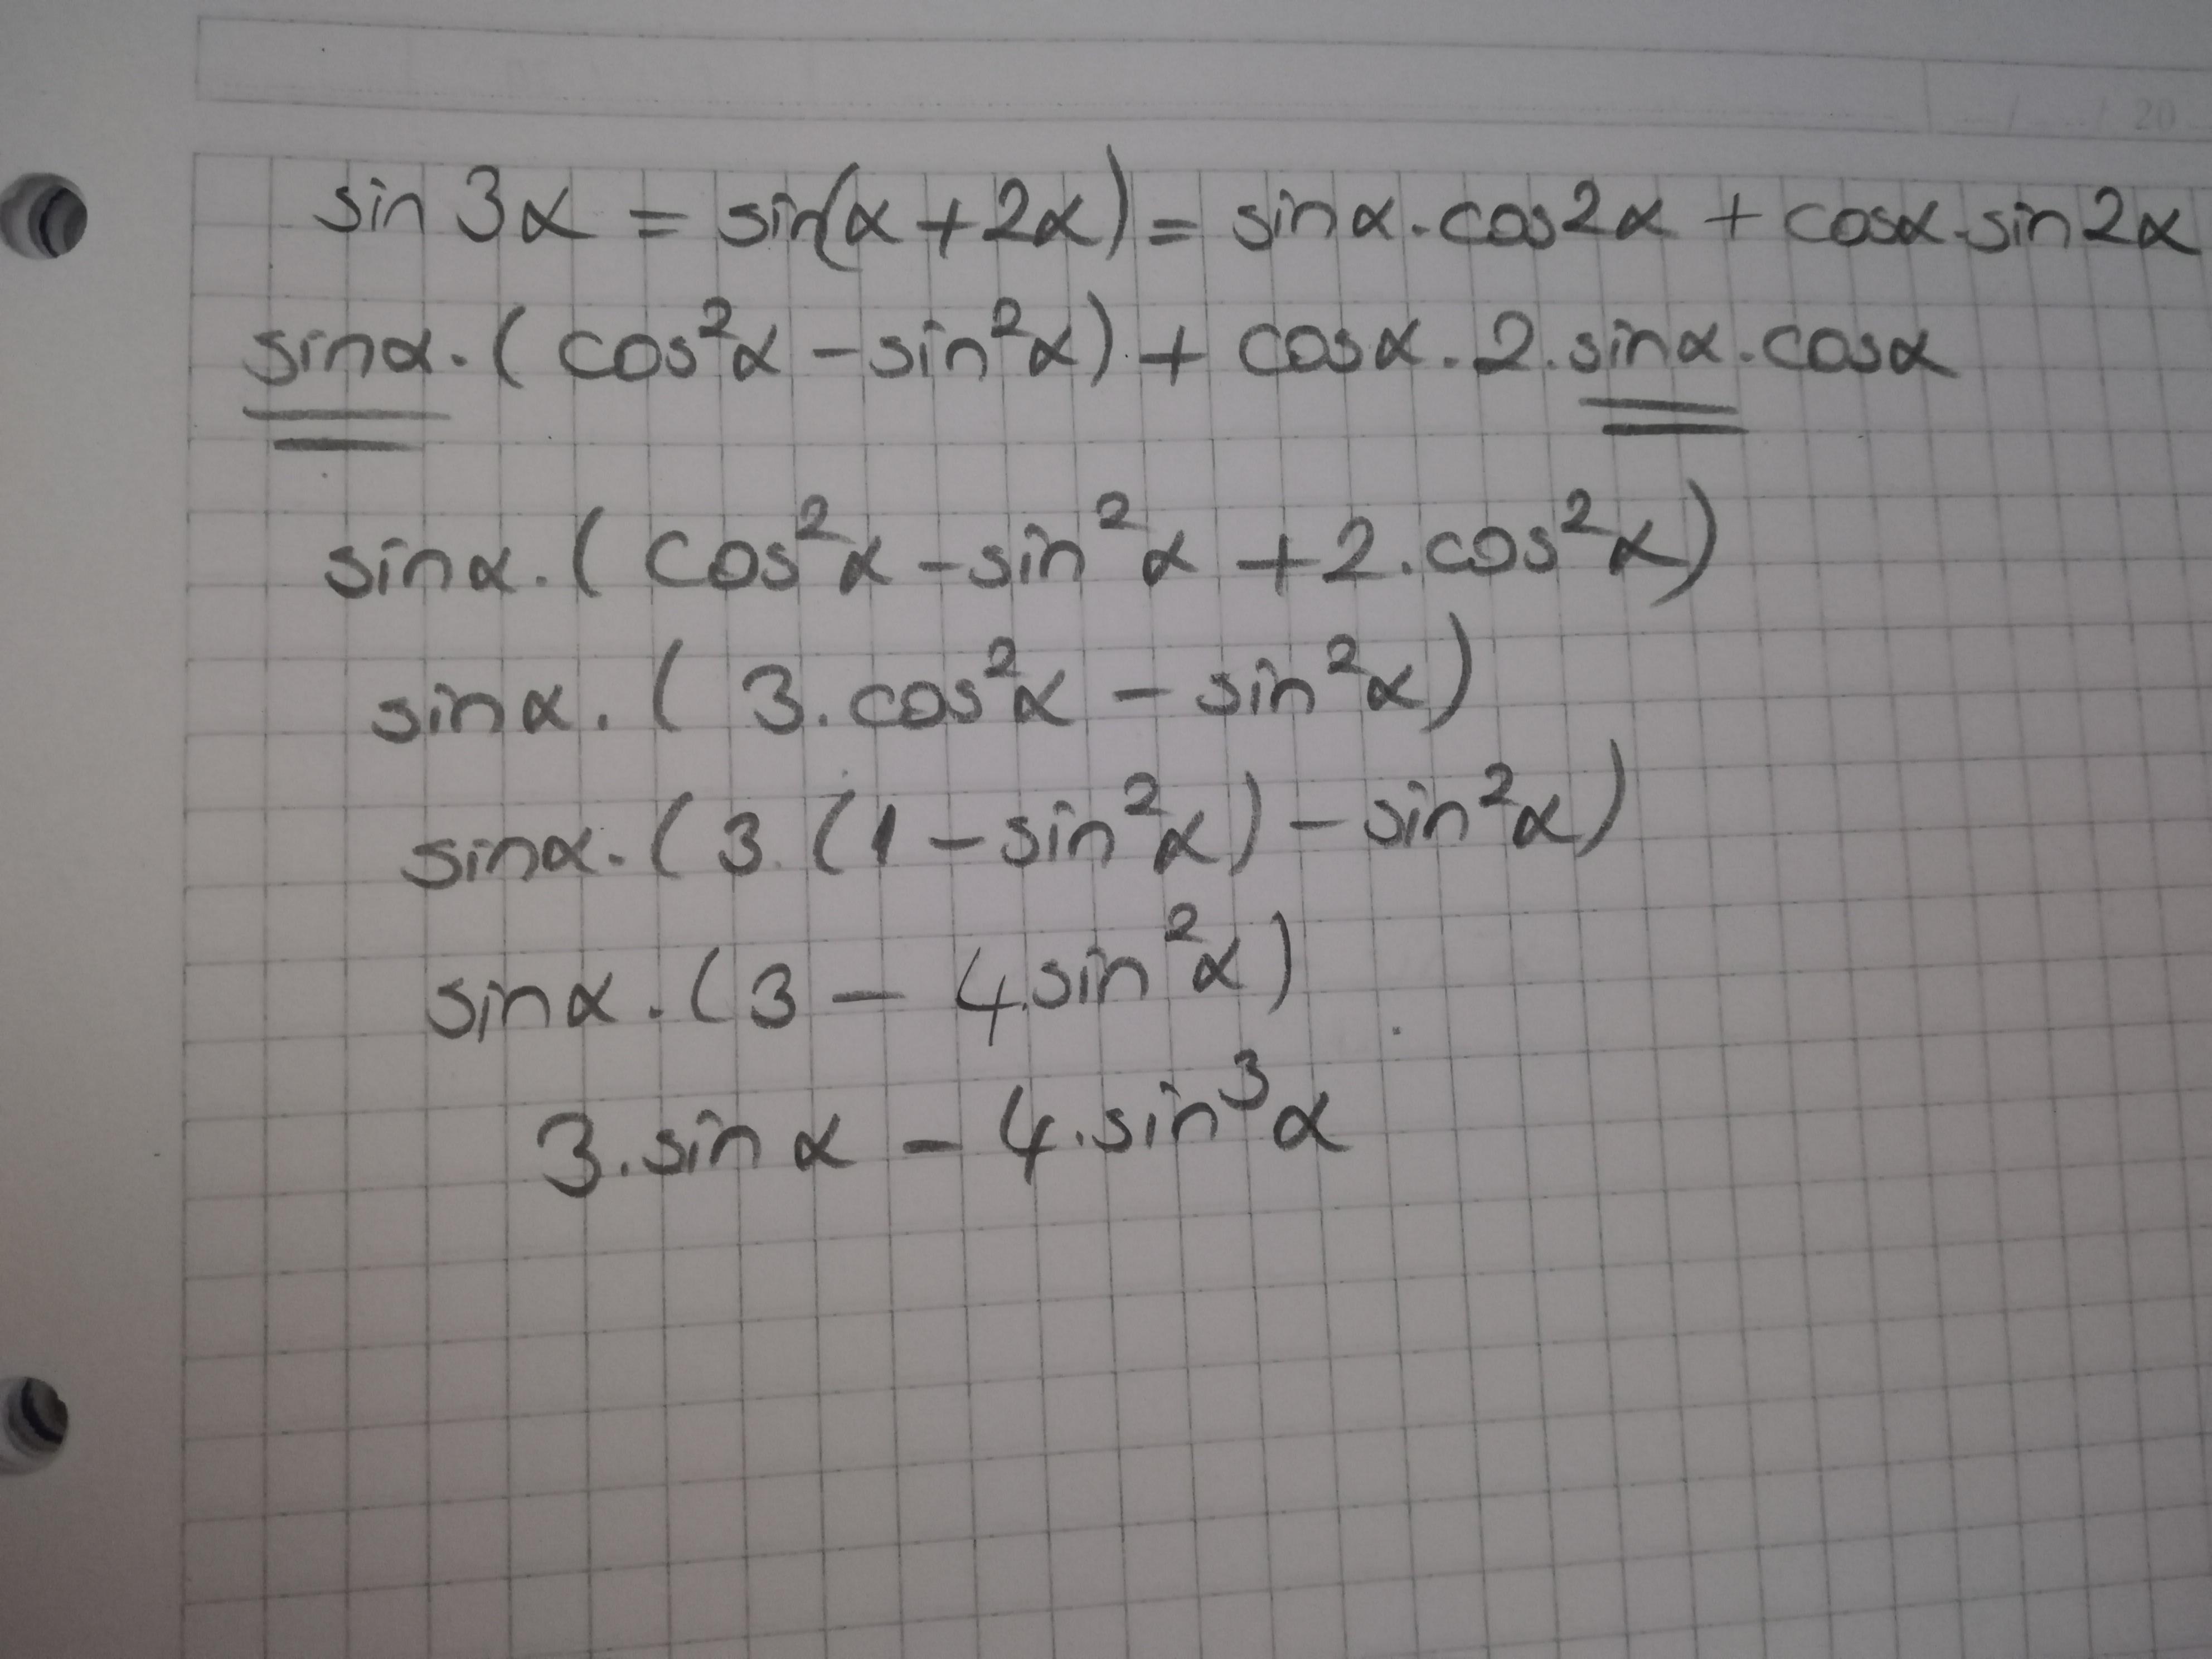 sin 3α = sin(α + 2α) = sinα . cos2α + cosα . sin2α
sinα . ( cos²α - sin²α) + cosα . 2 . sinα . cosα
sinα . ( cos²α - sin²α + 2 . cos²α)
sinα . ( 3 . cos²α - sin²α)
sinα . (3 . (1 - sin²α) - sin²α)
sinα . (3 - 4.sin²α)
3 . sin α - 4 . sin³α